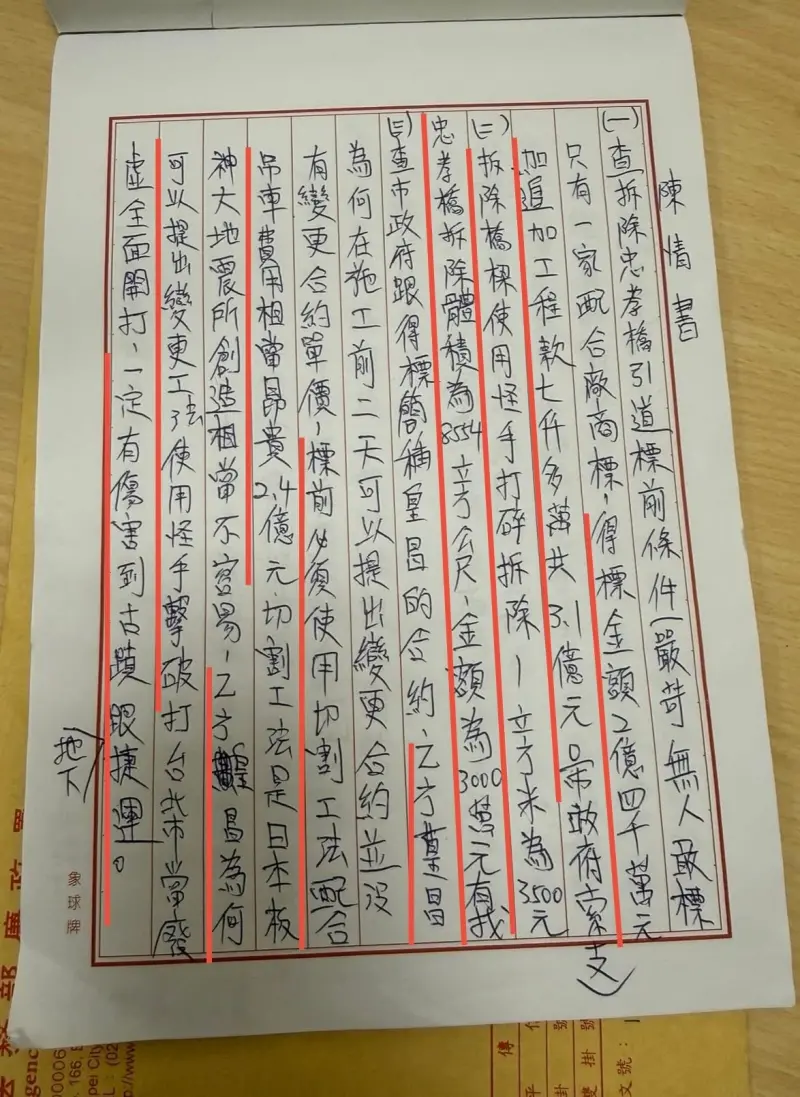 陳情書
(一)查拆除忠孝橋引道標前條件嚴苛無人敢標
只有一家配合廠商標,得標金額2億四千萬元
加追加工程款七仟多萬共3.1億元政府索支
(二)拆除橋樑使用怪手打碎拆除1立方米為3500元
忠孝橋拆除體積為8554立方公尺,金額為3000萬元有找
(三)查市政府跟得標簡稱皇昌的合約,乙方皇昌
為何在施工前二天可以提出變更合約並沒
有變更合約單價,標前必須使用切割工法配合
吊車費用相當昂貴2.4億元,切割工法是日本板
神大地震所創造相當不容易,乙方昌為何
可以提出變更工法使用怪手擊破打台北市當廢
虛全面開打,一定有傷害到古蹟跟捷運。
地下
象球牌
部廉政署
gency
00006
166,
pei City
L:(02
http://www
傳
平
信
掛號
雙掛號
文號: